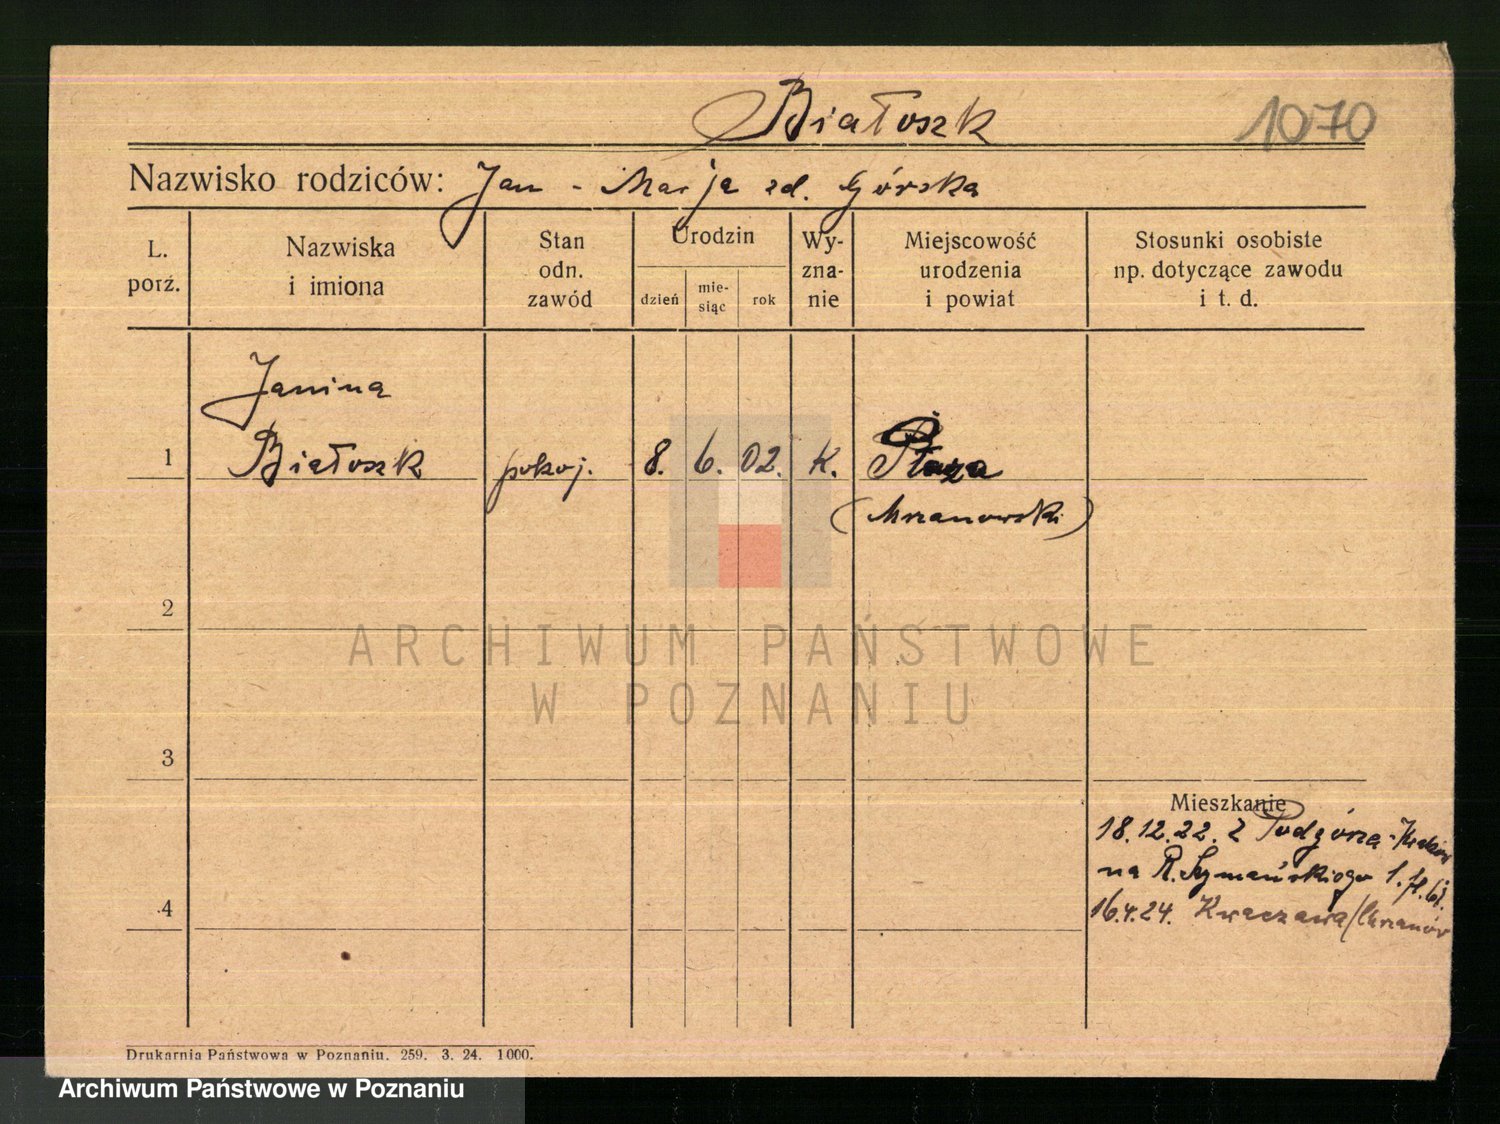 Białoszk
1070
Nazwisko rodziców: Jan - Marja zd. Górska
L. porz.
Nazwiska i imiona
Stan odn. zawód
Urodzin
dzień
mie- siąc
rok
Wy- zna- nie
Miejscowość urodzenia i powiat
Stosunki osobiste np. dotyczące zawodu i t. d.
Janina
1 Białoszk pokoj. 8. 6. 02. K. Płaza
(Mrzanowski)
2
ARCHIWUM PAŃSTWOWE
W POZNANIU
3
Mieszkanie
18.12.22. Z Podgórza - Kraków
na R. Szymańskiego 1.
4
16.4.24. Kwaczawa/Chrzanów
Drukarnia Państwowa w Poznaniu. 259. 3. 24. 1000.
Archiwum Państwowe w Poznaniu